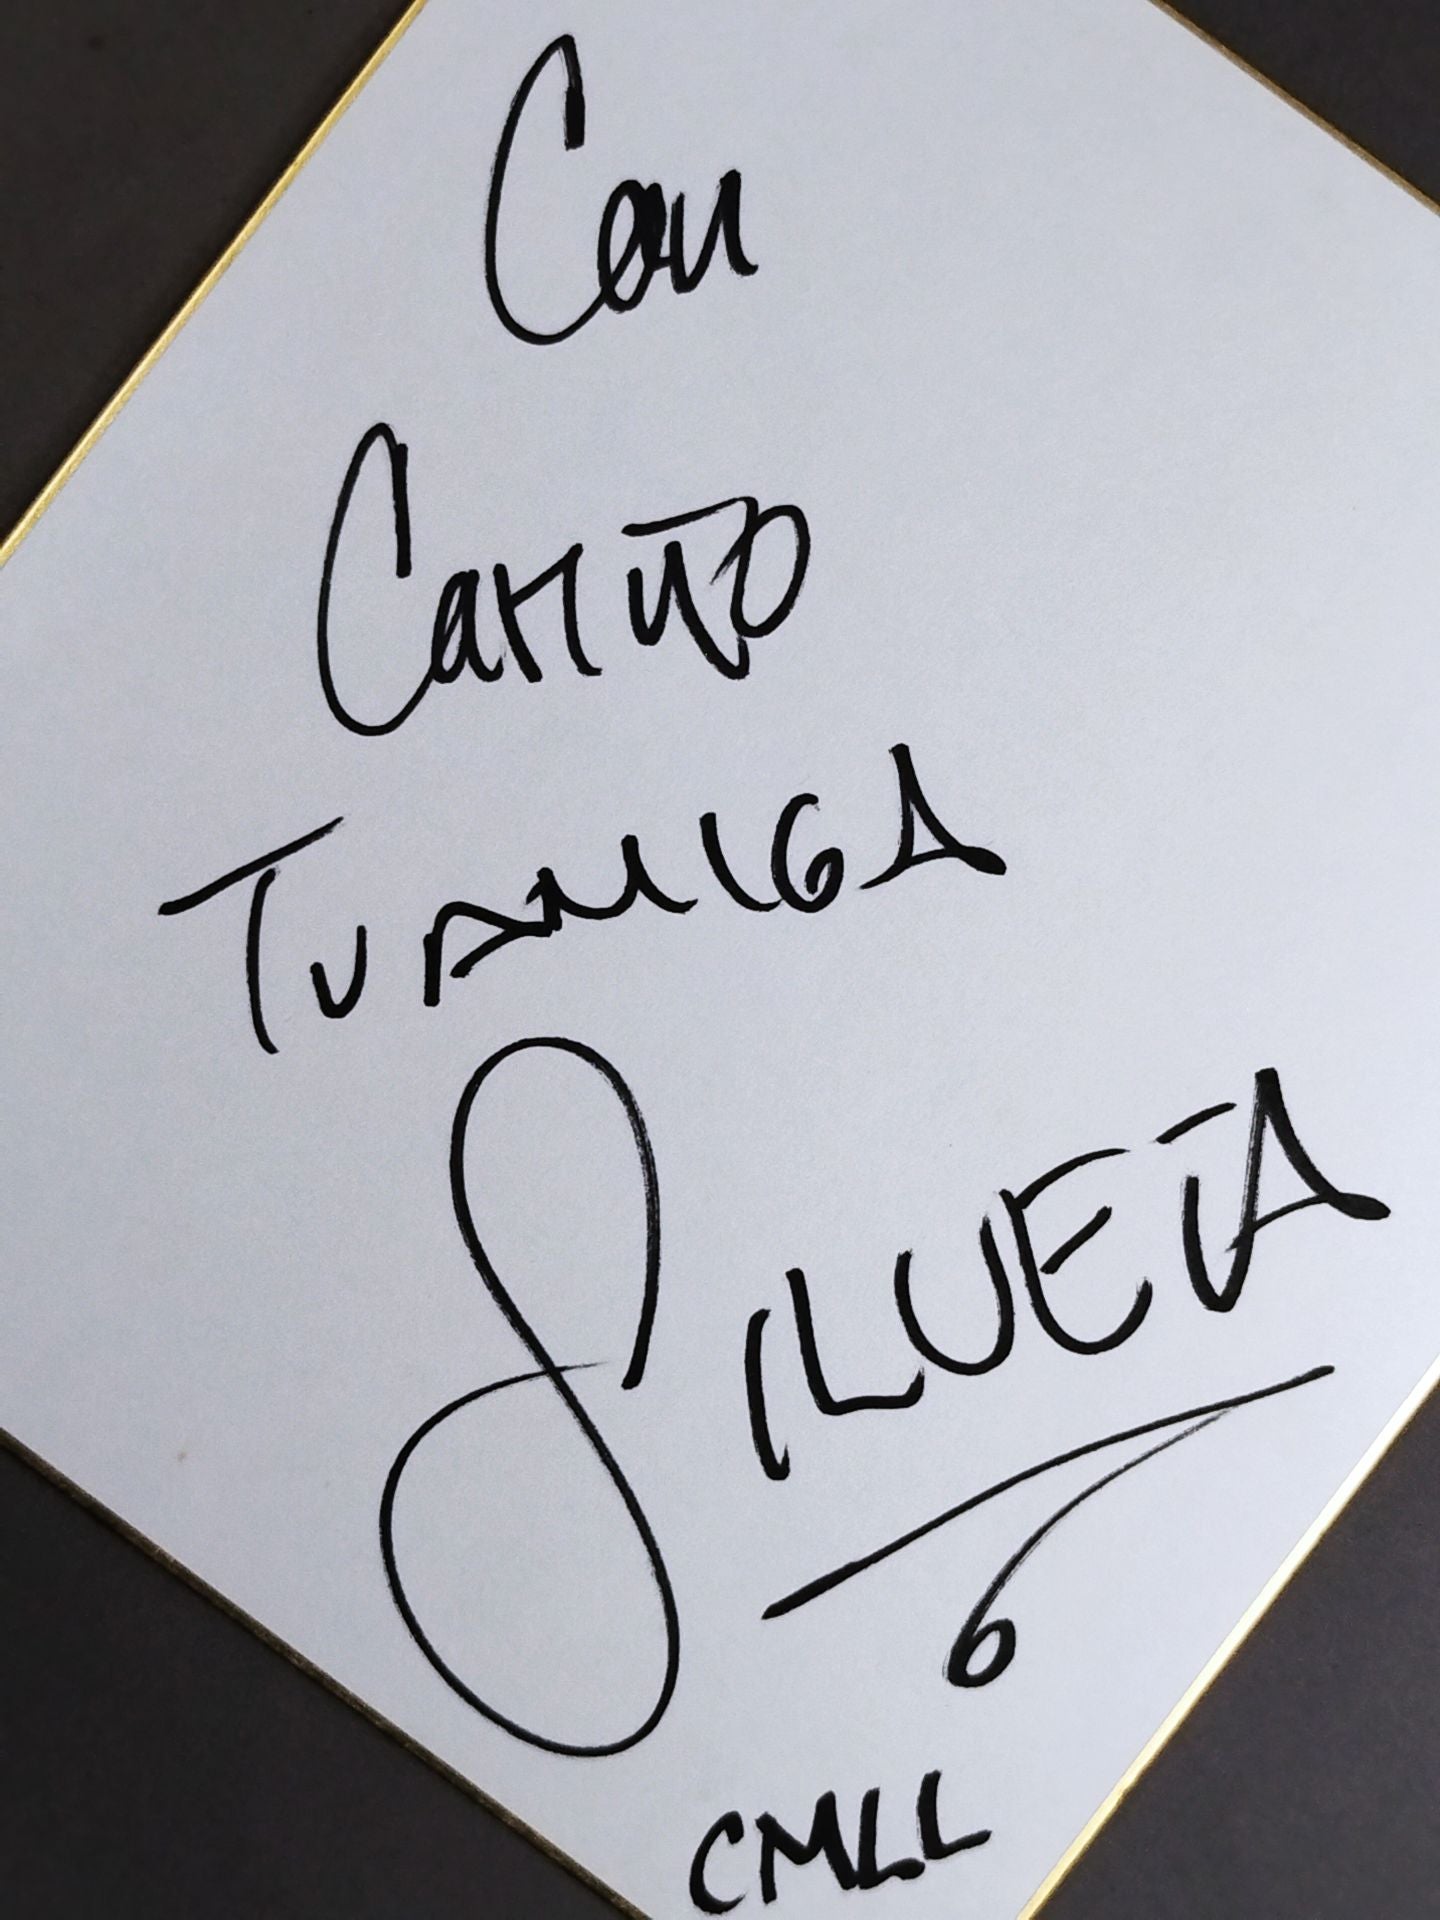 Con
Cariño
TU AMIGA
SILUETA
CMLL